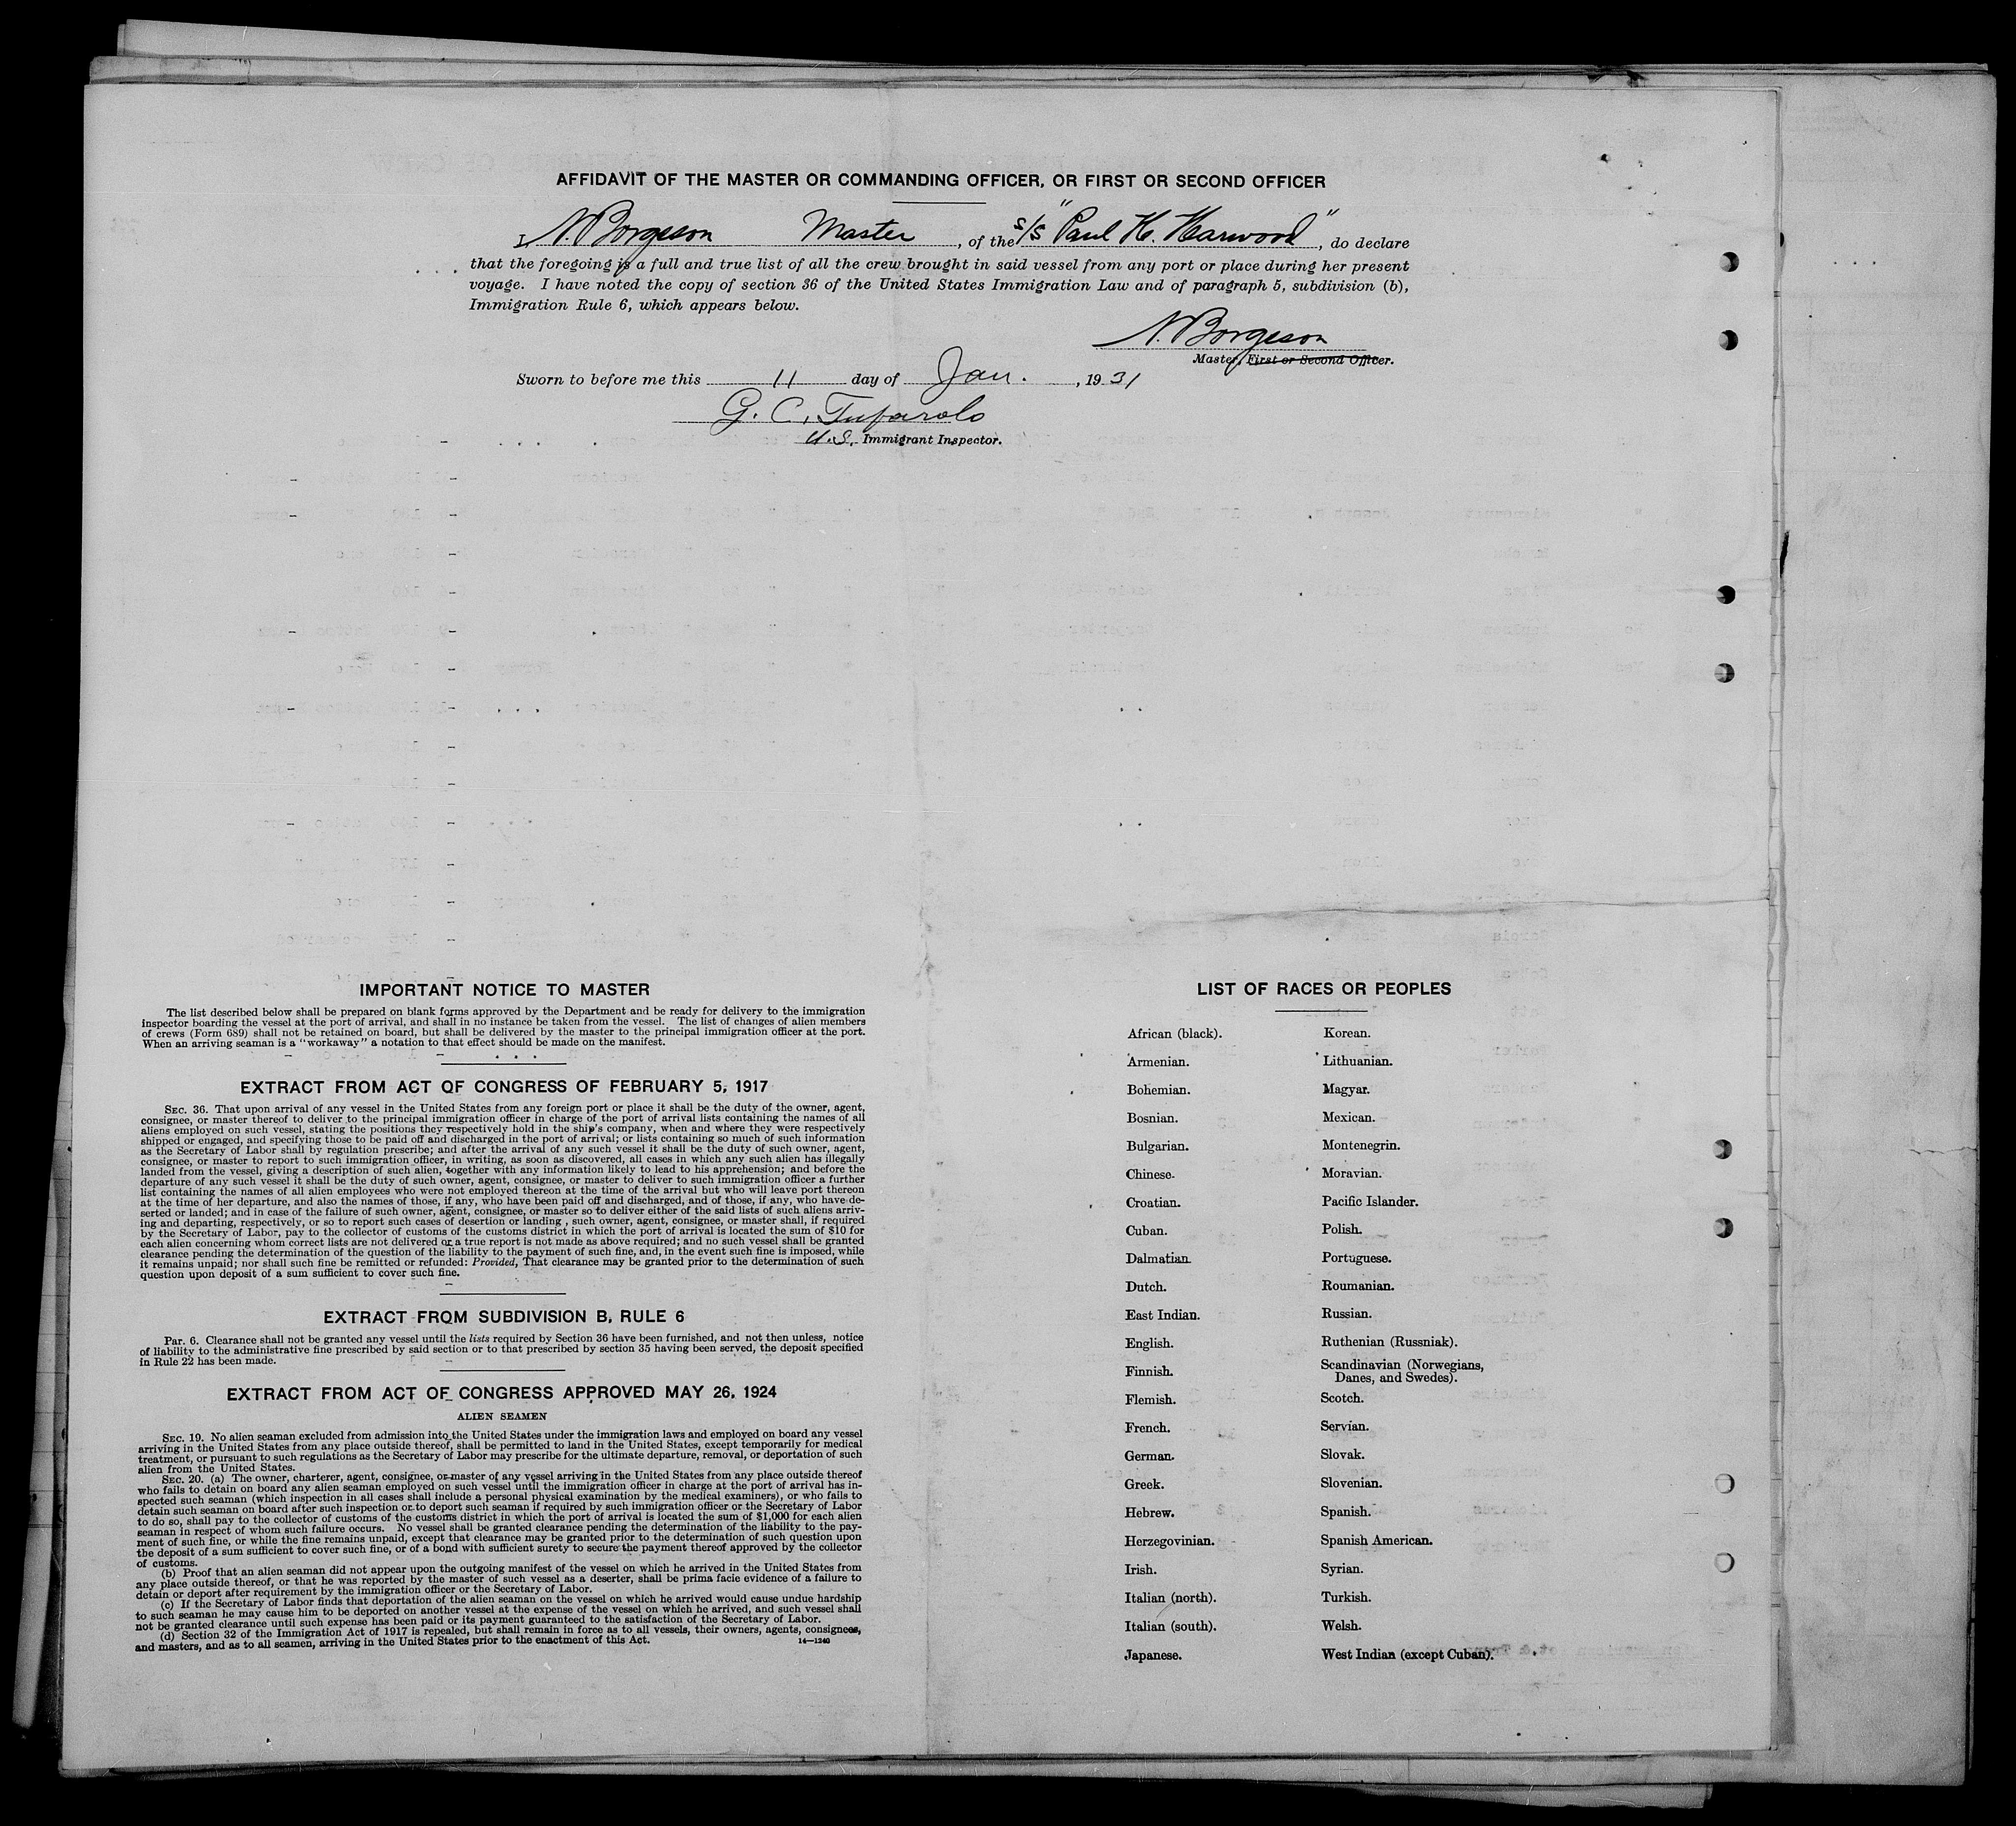 AFFIDAVIT OF THE MASTER OR COMMANDING OFFICER, OR FIRST OR SECOND OFFICER
I, N. Borgeson Master, of the s/s "Paul H. Harwood", do declare
that the foregoing is a full and true list of all the crew brought in said vessel from any port or place during her present
voyage. I have noted the copy of section 36 of the United States Immigration Law and of paragraph 5, subdivision (b),
Immigration Rule 6, which appears below.
N. Borgeson
Master, First or Second Officer.
Sworn to before me this 11 day of Jan., 1931
G. C. Tufarolo
U.S. Immigrant Inspector.
IMPORTANT NOTICE TO MASTER
The list described below shall be prepared on blank forms approved by the Department and be ready for delivery to the immigration
inspector boarding the vessel at the port of arrival, and shall in no instance be taken from the vessel. The list of changes of alien members
of crews (Form 689) shall not be retained on board, but shall be delivered by the master to the principal immigration officer at the port.
When an arriving seaman is a "workaway" a notation to that effect should be made on the manifest.
EXTRACT FROM ACT OF CONGRESS OF FEBRUARY 5, 1917
SEC. 36. That upon arrival of any vessel in the United States from any foreign port or place it shall be the duty of the owner, agent,
consignee, or master thereof to deliver to the principal immigration officer in charge of the port of arrival lists containing the names of all
aliens employed on such vessel, stating the positions they respectively hold in the ship's company, when and where they were respectively
shipped or engaged, and specifying those to be paid off and discharged in the port of arrival; or lists containing so much of such information
as the Secretary of Labor shall by regulation prescribe; and after the arrival of any such vessel it shall be the duty of such owner, agent,
consignee, or master to report to such immigration officer, in writing, as soon as discovered, all cases in which any such alien has illegally
landed from the vessel, giving a description of such alien, together with any information likely to lead to his apprehension; and before the
departure of any such vessel it shall be the duty of such owner, agent, consignee, or master to deliver to such immigration officer a further
list containing the names of all alien employees who were not employed thereon at the time of the arrival but who will leave port thereon
at the time of her departure, and also the names of those, if any, who have been paid off and discharged, and of those, if any, who have de-
serted or landed; and in case of the failure of such owner, agent, consignee, or master so to deliver either of the said lists of such aliens arriv-
ing and departing, respectively, or so to report such cases of desertion or landing, such owner, agent, consignee, or master shall, if required
by the Secretary of Labor, pay to the collector of customs of the customs district in which the port of arrival is located the sum of $10 for
each alien concerning whom correct lists are not delivered or a true report is not made as above required; and no such vessel shall be granted
clearance pending the determination of the question of the liability to the payment of such fine, and, in the event such fine is imposed, while
it remains unpaid; nor shall such fine be remitted or refunded: Provided, That clearance may be granted prior to the determination of such
question upon deposit of a sum sufficient to cover such fine.
EXTRACT FROM SUBDIVISION B, RULE 6
Par. 6. Clearance shall not be granted any vessel until the lists required by Section 36 have been furnished, and not then unless, notice
of liability to the administrative fine prescribed by said section or to that prescribed by section 35 having been served, the deposit specified
in Rule 22 has been made.
EXTRACT FROM ACT OF CONGRESS APPROVED MAY 26, 1924
ALIEN SEAMEN
SEC. 19. No alien seaman excluded from admission into the United States under the immigration laws and employed on board any vessel
arriving in the United States from any place outside thereof, shall be permitted to land in the United States, except temporarily for medical
treatment, or pursuant to such regulations as the Secretary of Labor may prescribe for the ultimate departure, removal, or deportation of such
alien from the United States.
SEC. 20. (a) The owner, charterer, agent, consignee, or master of any vessel arriving in the United States from any place outside thereof
who fails to detain on board any alien seaman employed on such vessel until the immigration officer in charge at the port of arrival has in-
spected such seaman (which inspection in all cases shall include a personal physical examination by the medical examiners), or who fails to
detain such seaman on board after such inspection or to deport such seaman if required by such immigration officer or the Secretary of Labor
to do so, shall pay to the collector of customs of the customs district in which the port of arrival is located the sum of $1,000 for each alien
seaman in respect of whom such failure occurs. No vessel shall be granted clearance pending the determination of the liability to the pay-
ment of such fine, or while the fine remains unpaid, except that clearance may be granted prior to the determination of such question upon
the deposit of a sum sufficient to cover such fine, or of a bond with sufficient surety to secure the payment thereof approved by the collector
of customs.
(b) Proof that an alien seaman did not appear upon the outgoing manifest of the vessel on which he arrived in the United States from
any place outside thereof, or that he was reported by the master of such vessel as a deserter, shall be prima facie evidence of a failure to
detain or deport after requirement by the immigration officer or the Secretary of Labor.
(c) If the Secretary of Labor finds that deportation of the alien seaman on the vessel on which he arrived would cause undue hardship
to such seaman he may cause him to be deported on another vessel at the expense of the vessel on which he arrived, and such vessel shall
not be granted clearance until such expense has been paid or its payment guaranteed to the satisfaction of the Secretary of Labor.
(d) Section 32 of the Immigration Act of 1917 is repealed, but shall remain in force as to all vessels, their owners, agents, consignees,
and masters, and as to all seamen, arriving in the United States prior to the enactment of this Act. 14—1240
LIST OF RACES OR PEOPLES
African (black).
Armenian.
Bohemian.
Bosnian.
Bulgarian.
Chinese.
Croatian.
Cuban.
Dalmatian.
Dutch.
East Indian.
English.
Finnish.
Flemish.
French.
German.
Greek.
Hebrew.
Herzegovinian.
Irish.
Italian (north).
Italian (south).
Japanese.
Korean.
Lithuanian.
Magyar.
Mexican.
Montenegrin.
Moravian.
Pacific Islander.
Polish.
Portuguese.
Roumanian.
Russian.
Ruthenian (Russniak).
Scandinavian (Norwegians,
Danes, and Swedes).
Scotch.
Servian.
Slovak.
Slovenian.
Spanish.
Spanish American.
Syrian.
Turkish.
Welsh.
West Indian (except Cuban).